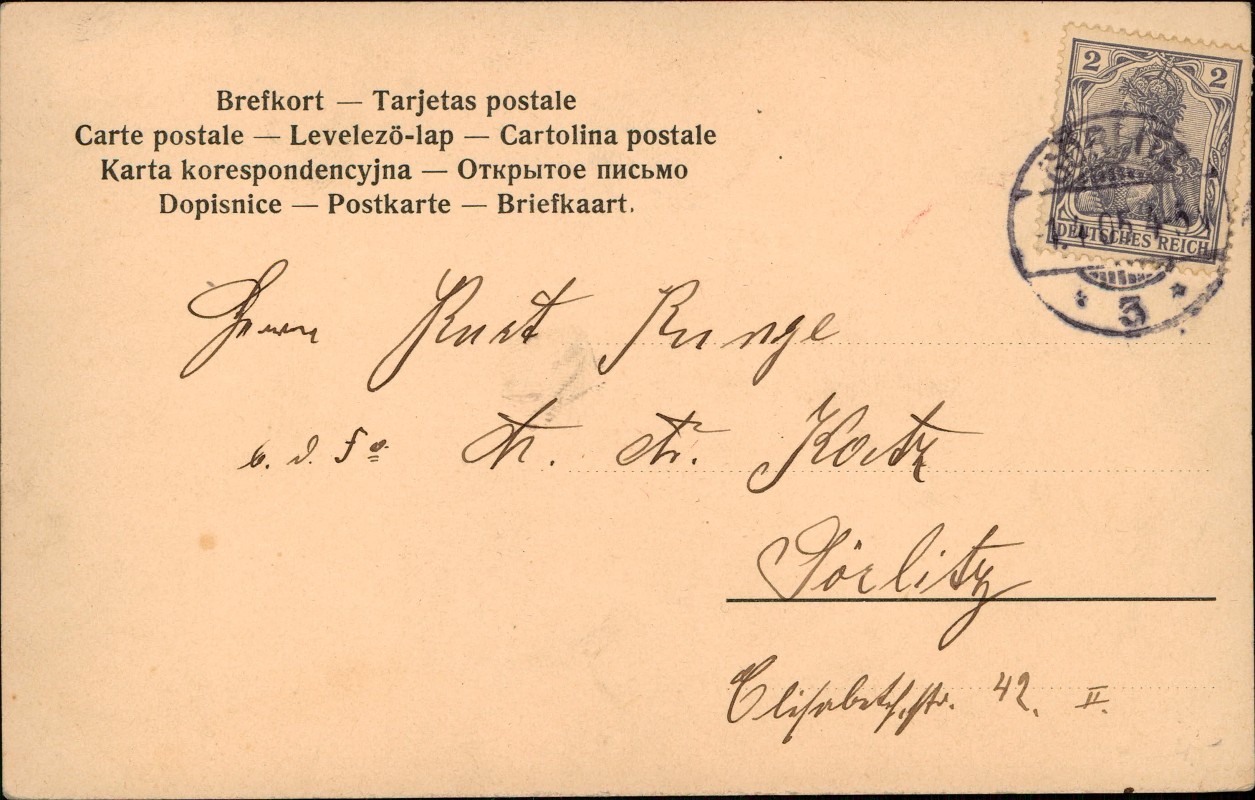 Brefkort — Tarjetas postale
Carte postale — Levelezö-lap — Cartolina postale
Karta korespondencyjna — Открытое письмо
Dopisnice — Postkarte — Briefkaart.
2 2
DEUTSCHES REICH
3
Herrn Kurt Runge
b. d. Katz
Görlitz
Elisabethstr. 42. II.